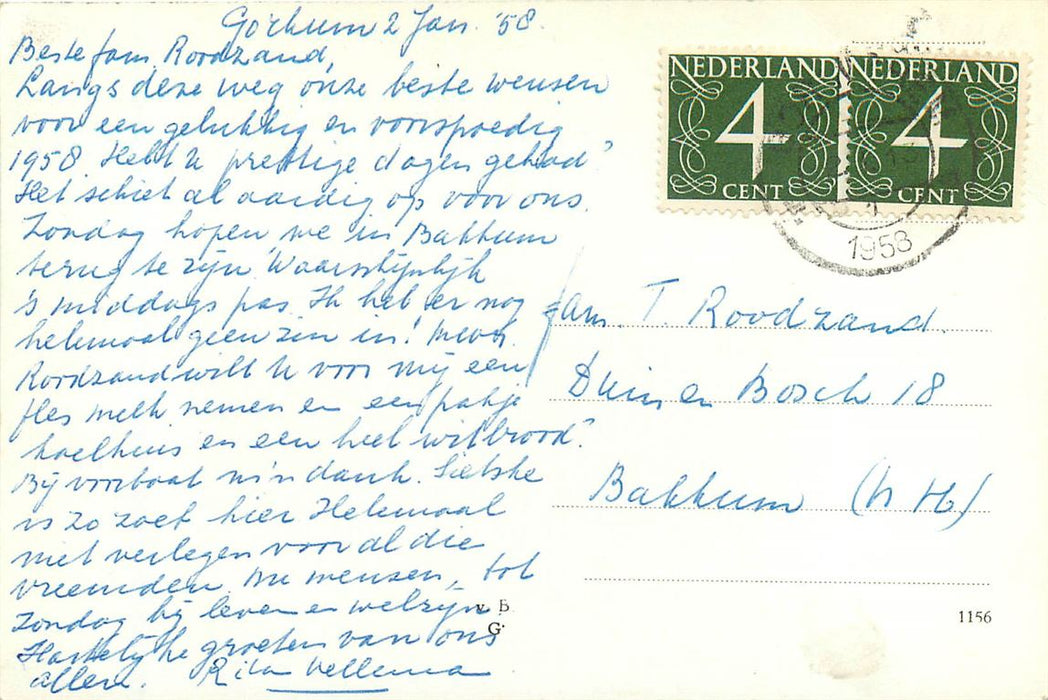 Gorkum 2 Jan. '58.
Beste fam. Roodzand,
Langs deze weg onze beste wensen
voor een gelukkig en voorspoedig
1958. Hebt U prettige dagen gehad?
Het schiet al aardig op voor ons.
Zondag hopen we in Bakkum
terug te zijn Waarschijnlijk
's middags pas. Ik heb er nog
helemaal geen zin in! Mevr.
Roodzand wilt U voor mij een
fles melk nemen en een pakje
en een heel witbrood?
Bij voorbaat m'n dank. Sietske
is zo zoet hier Helemaal
niet verlegen voor al die
vreemden. mensen, tot
zondag bij leven en welzijn
Hartelijke groeten van ons
allen. Rita Vellema
NEDERLAND NEDERLAND
4 4
CENT CENT
1958
Fam. T. Roodzand.
Duin en Bosch 18
Bakkum (N H)
v. B.
G.
1156